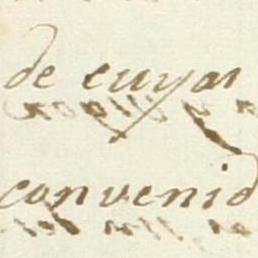 de cuyas
convenid